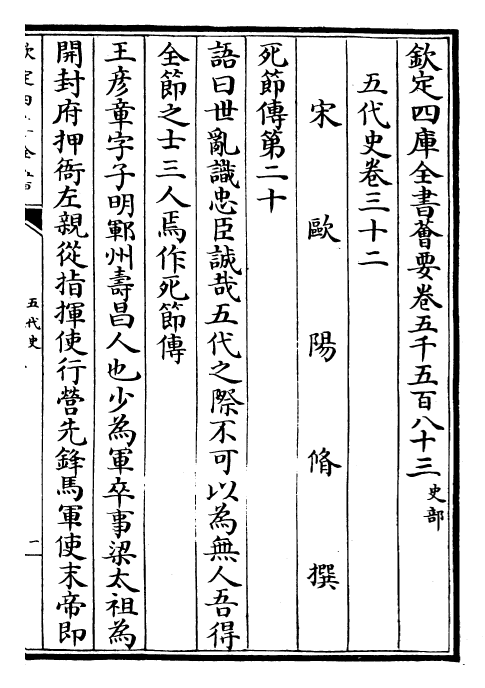 欽定四庫全書薈要卷五千五百八十三 史部
五代史卷三十二
宋 歐 陽 脩 撰
死節傳第二十
語曰世亂識忠臣誠哉五代之際不可以為無人吾得
全節之士三人焉作死節傳
王彥章字子明鄆州壽昌人也少為軍卒事梁太祖為
開封府押衙左親從指揮使行營先鋒馬軍使末帝即
欽定四庫全書
五代史